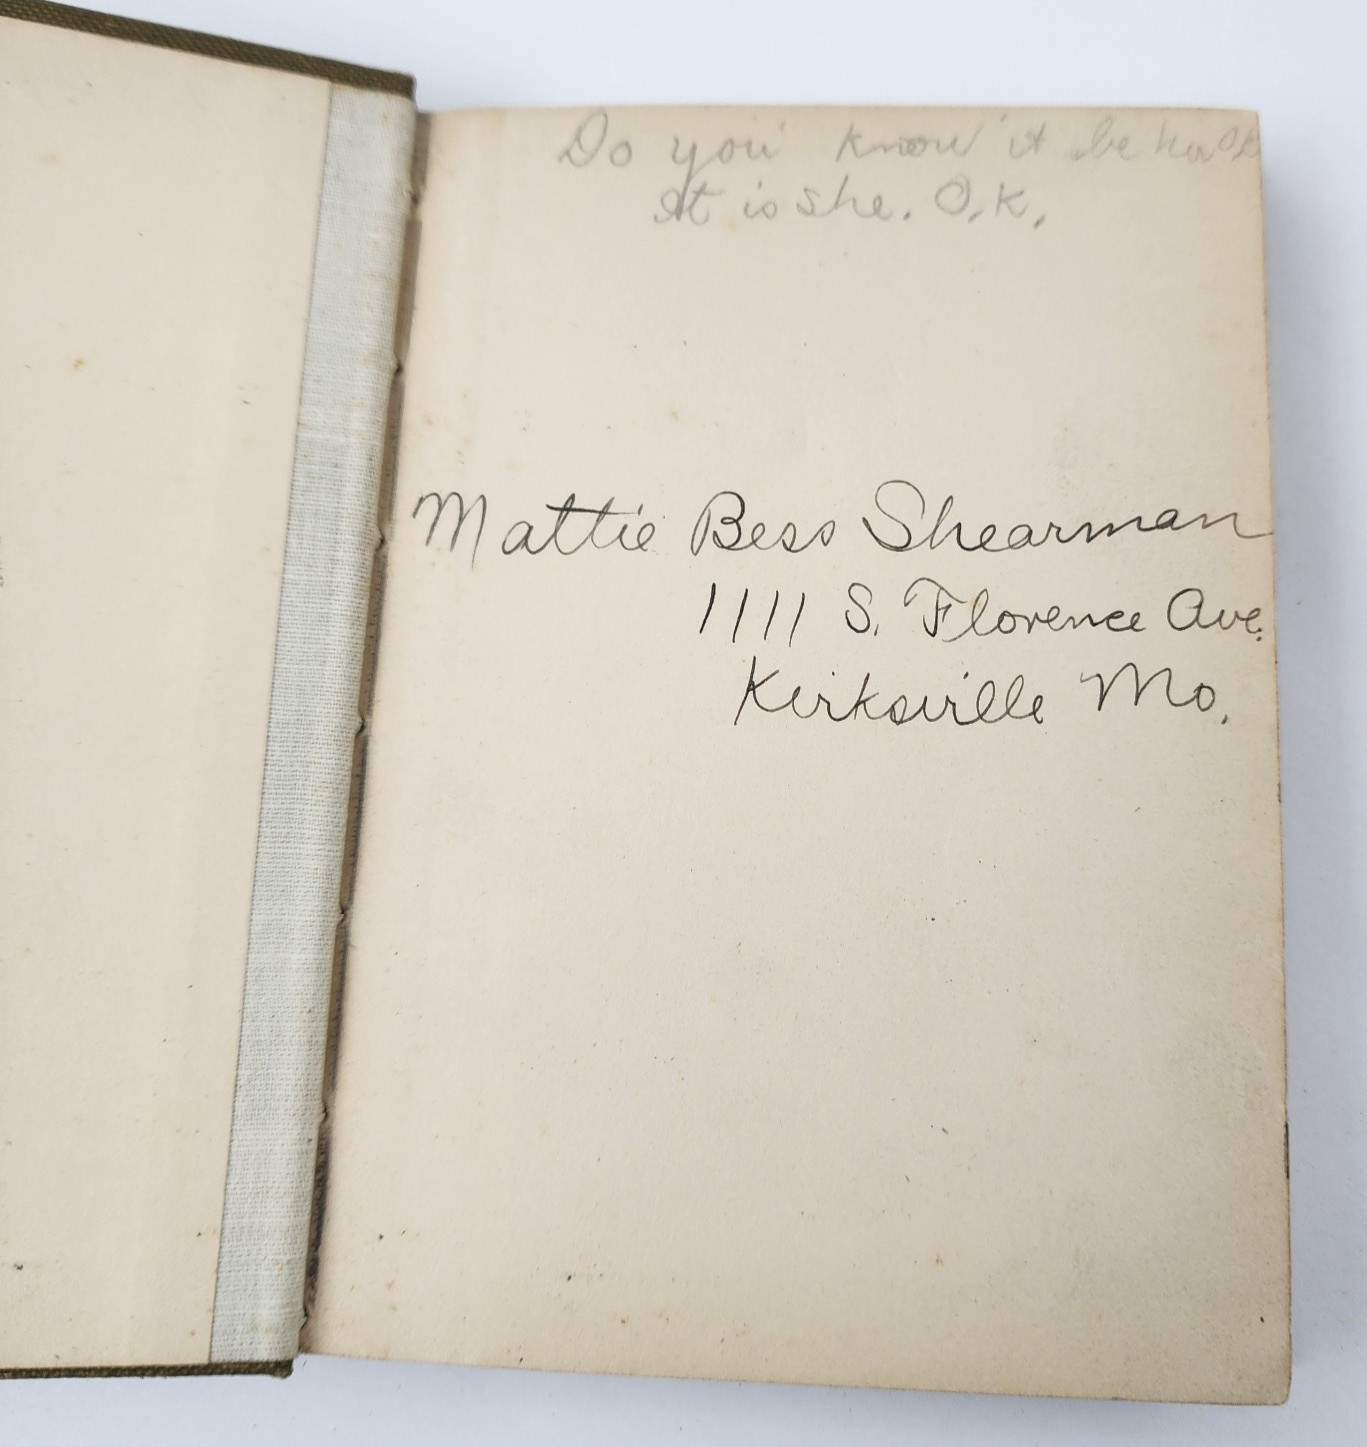 Do you know it be her OK
It is she. O.K.
Mattie Bess Shearman
1111 S. Florence Ave.
Kirksville Mo.